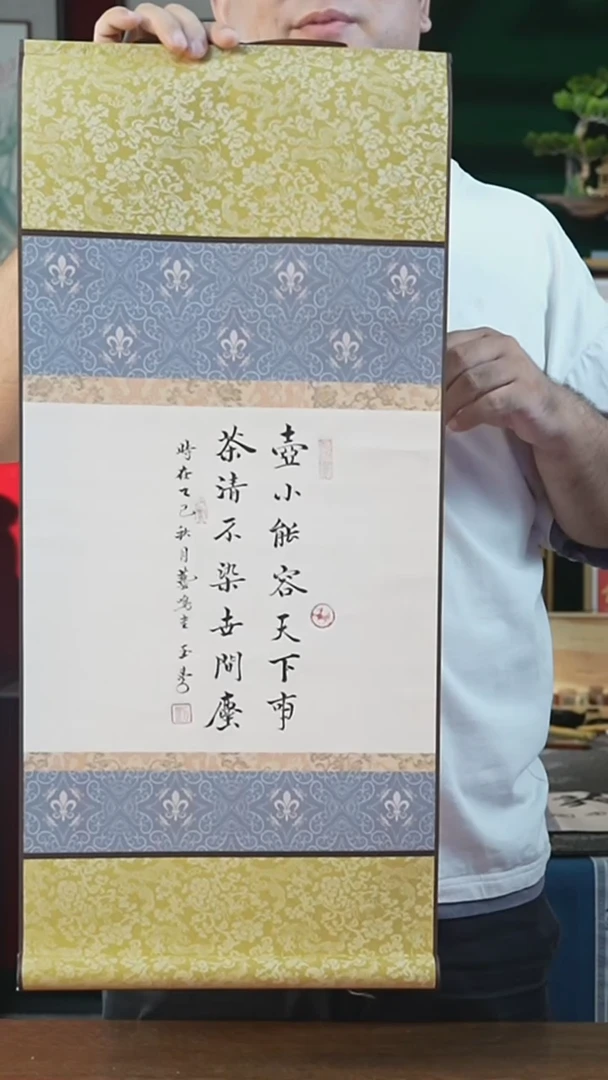 壺小能容天下事
茶清不染世間塵
時在乙巳秋月